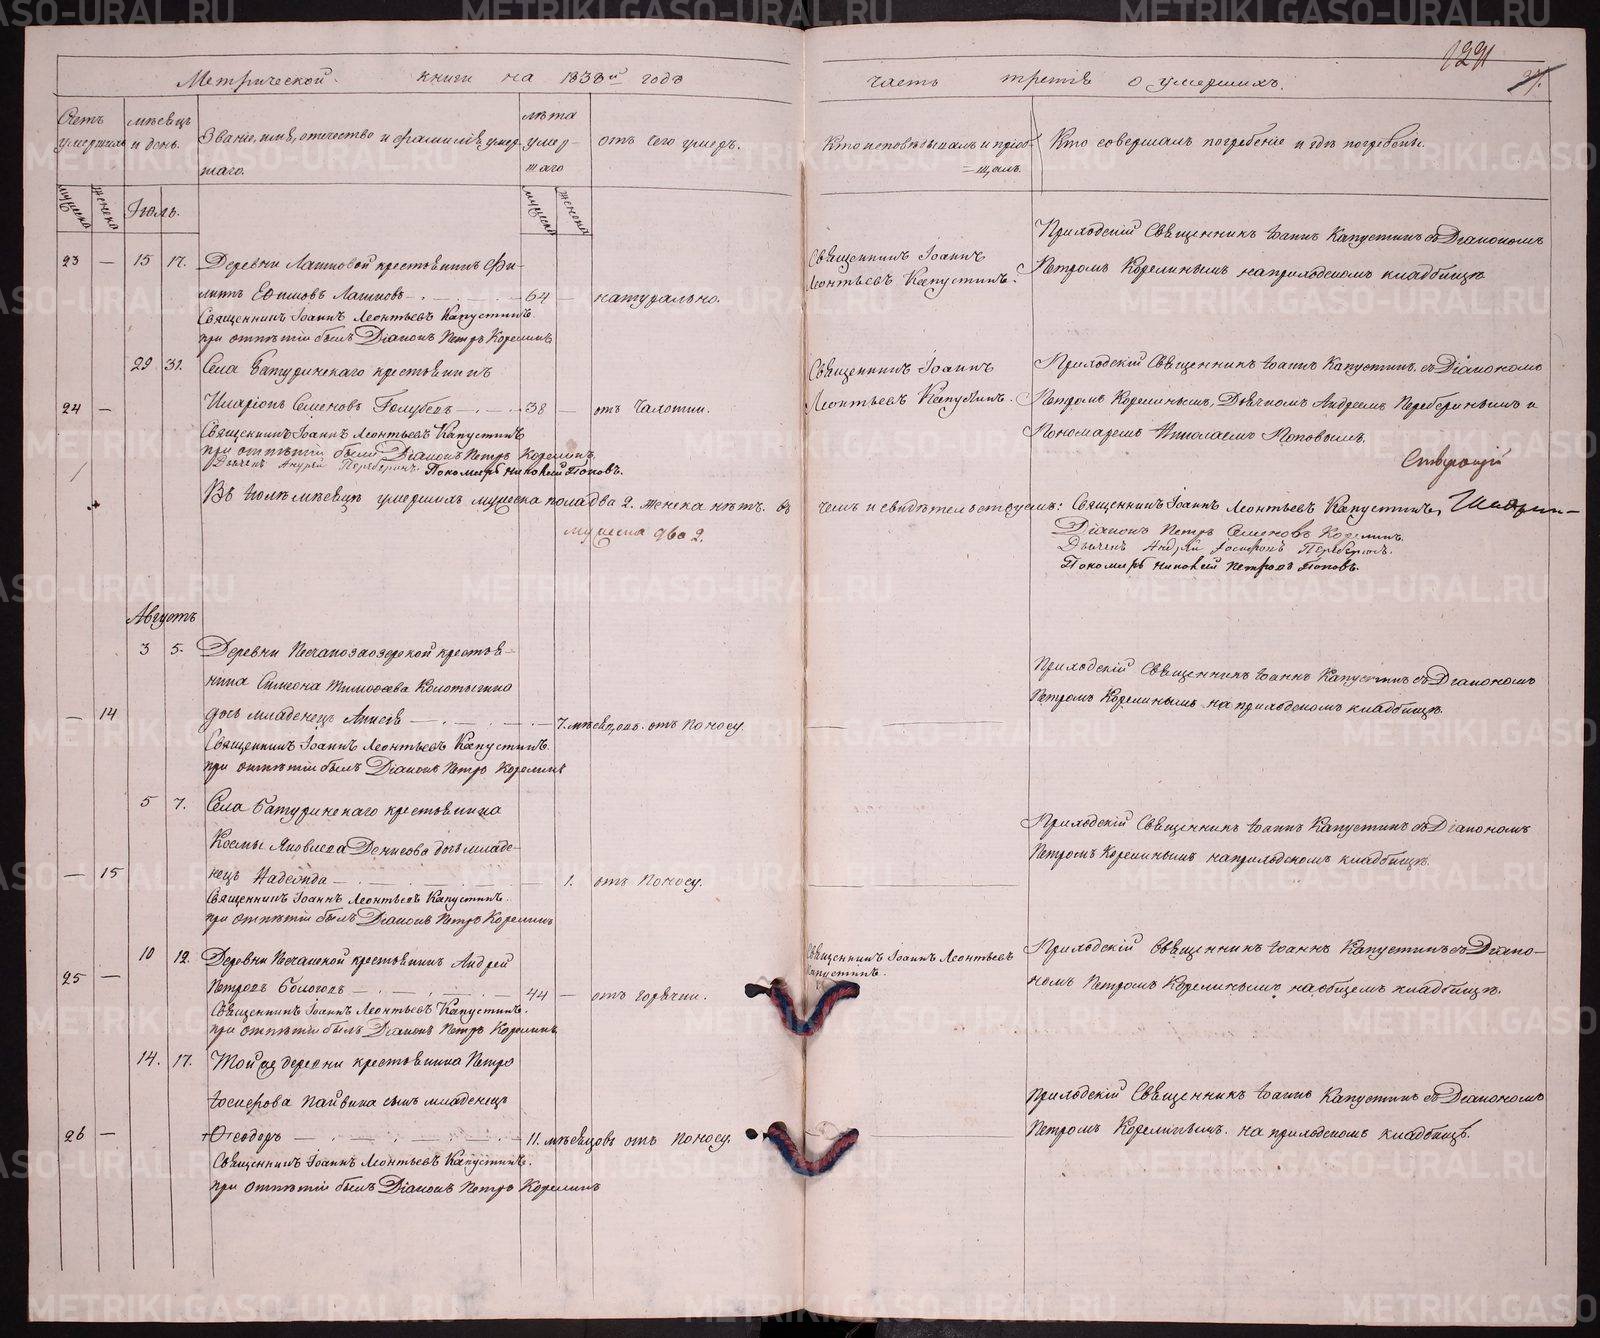 Метрической книги на 1838й годъ
часть третія о умершихъ.
1221
Счетъ умершихъ
мѣсяцъ и день.
Званіе, имя, отчество и фамилія умершаго.
лѣта умершаго
отъ чего умеръ.
Кто исповѣдывалъ и пріобщалъ.
Кто совершалъ погребеніе и гдѣ погребены.
мужеска
женска
Іюль.
мужеска
женска
23 — 15 17. Деревни Лапиковой крестьянинъ Фи-
липъ Ефимовъ Лапиковъ — 64 — натурально.
Священникъ Іоаннъ Леонтьевъ Капустинъ.
при отпѣтіи былъ Діаконъ Петръ Корелинъ
Священникъ Іоаннъ
Леонтьевъ Капустинъ.
Приходскій Священникъ Іоаннъ Капустинъ съ Діакономъ
Петромъ Корелинымъ на приходскомъ кладбищѣ
29 31. Села Батуринскаго крестьянинъ
24 — Иларіонъ Семеновъ Голубевъ — 38 — отъ чахотки.
Священникъ Іоаннъ Леонтьевъ Капустинъ
при отпѣтіи были Діаконъ Петръ Корелинъ,
Дьячекъ Андрей Переберинъ. Пономарь Николай Поповъ.
Священникъ Іоаннъ
Леонтьевъ Капустинъ.
Приходскій Священникъ Іоаннъ Капустинъ, съ Діакономъ
Петромъ Корелинымъ, Дьячкомъ Андреемъ Переберинымъ и
Пономаремъ Николаемъ Поповымъ.
Въ Іюлѣ мѣсяцѣ умершихъ мужеска пола два 2. женска нѣтъ. въ
чемъ и свидѣтельствуемъ: Священникъ Іоаннъ Леонтьевъ Капустинъ,
мужеска два 2.
Діаконъ Петръ Семеновъ Корелинъ.
Дьячекъ Андрей Іосифовъ Переберинъ.
Пономарь Николай Петровъ Поповъ.
Августъ
3 5. Деревни Песчанозаозерской крестья-
нина Симеона Тимофеева Колотыгина
— 14 дочь младенецъ Анисія — 7. мѣсяцовъ. отъ поносу.
Священникъ Іоаннъ Леонтьевъ Капустинъ.
при отпѣтіи былъ Діаконъ Петръ Корелинъ
Приходскій Священникъ Іоаннъ Капустинъ съ Діакономъ
Петромъ Корелинымъ на приходскомъ кладбищѣ.
5 7. Села Батуринскаго крестьянина
Космы Яковлева Денисова дочь младе-
— 15 нецъ Надежда — 1. отъ поносу.
Священникъ Іоаннъ Леонтьевъ Капустинъ.
при отпѣтіи былъ Діаконъ Петръ Корелинъ
Приходскій Священникъ Іоаннъ Капустинъ съ Діакономъ
Петромъ Корелинымъ на приходскомъ кладбищѣ.
10 12. Деревни Песчанской крестьянинъ Андрей
25 — Петровъ Бологовъ — 44 — отъ горячки.
Священникъ Іоаннъ Леонтьевъ Капустинъ.
при отпѣтіи былъ Діаконъ Петръ Корелинъ
Священникъ Іоаннъ Леонтьевъ
Капустинъ.
Приходскій Священникъ Іоаннъ Капустинъ съ Діако-
номъ Петромъ Корелинымъ на общемъ кладбищѣ.
14. 17. Той же деревни крестьянина Петра
Іосифова Пайвина сынъ младенецъ
26 — Ѳеодоръ — 11. мѣсяцовъ отъ поносу.
Священникъ Іоаннъ Леонтьевъ Капустинъ.
при отпѣтіи былъ Діаконъ Петръ Корелинъ
Приходскій Священникъ Іоаннъ Капустинъ съ Діакономъ
Петромъ Корелинымъ. на приходскомъ кладбищѣ.
METRIKI.GASO-URAL.RU